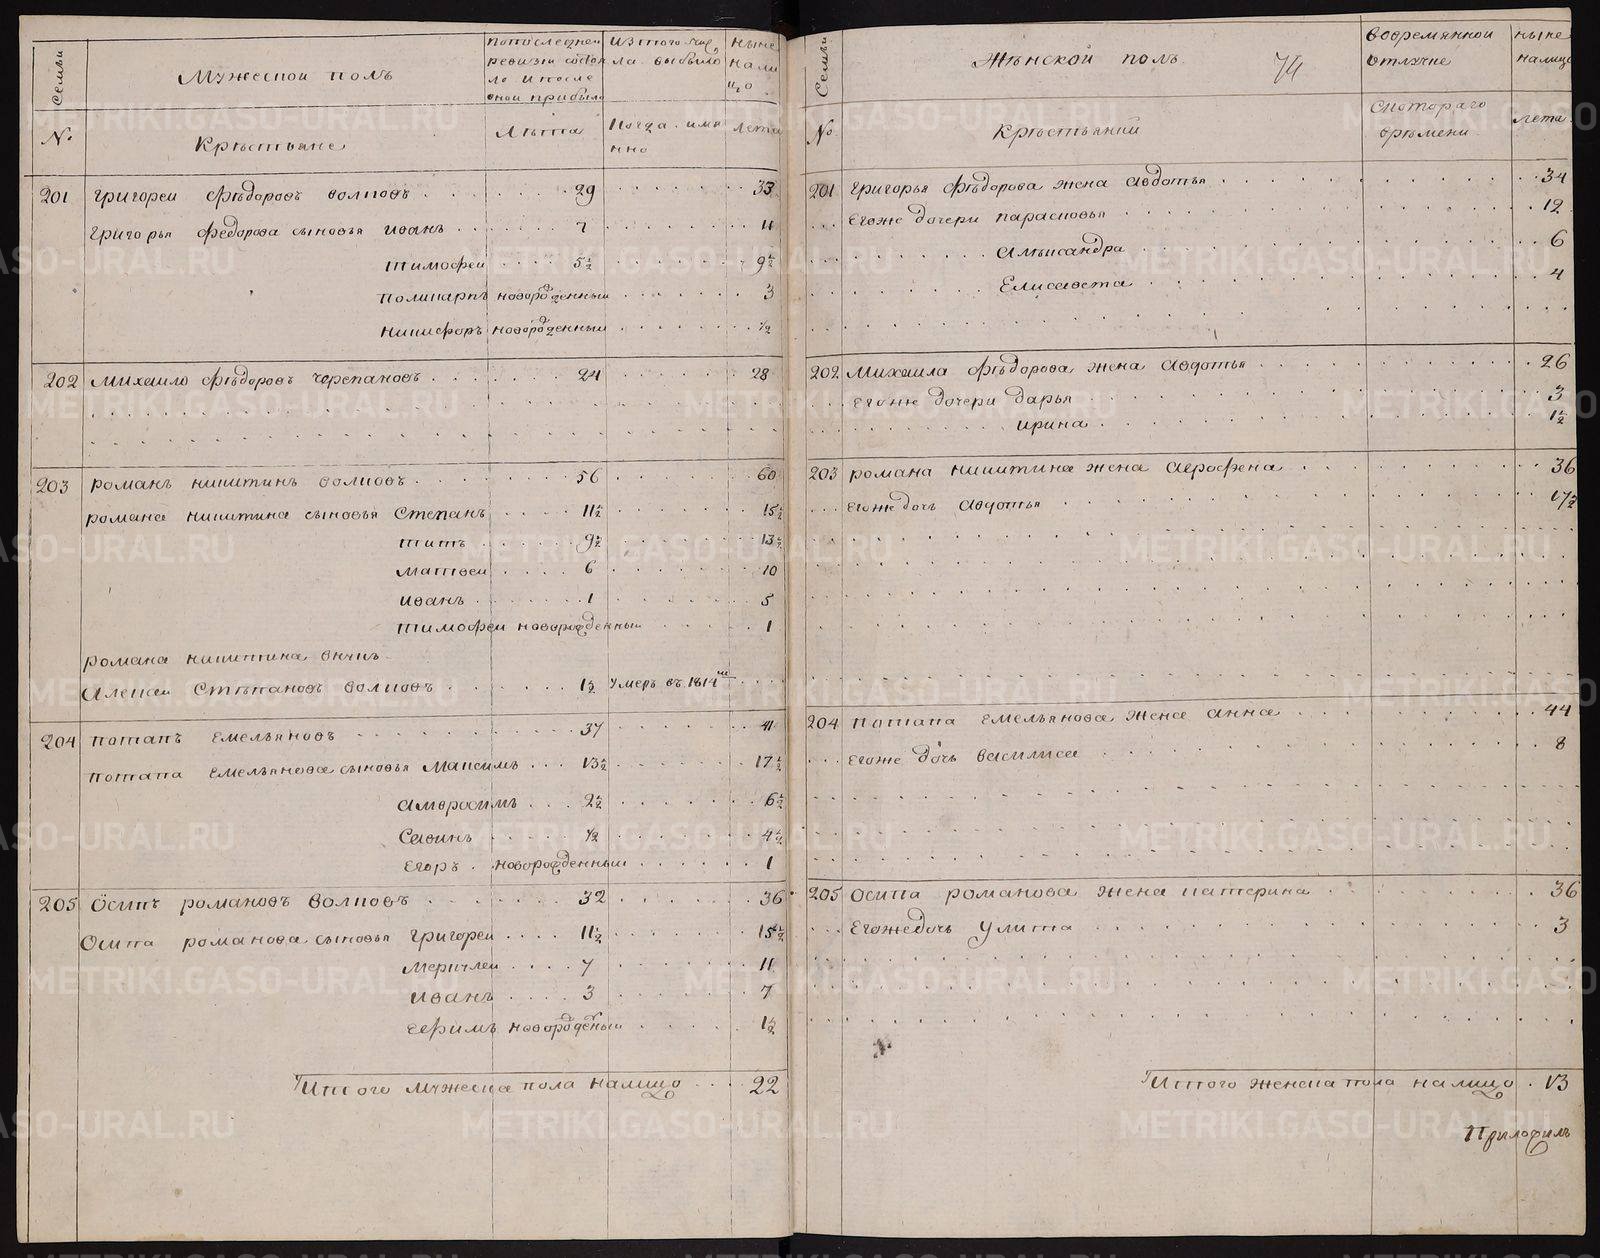 Семьи
Мужескои полъ
попоследнеи ревизи состояло и после оной прибыло
Изтого числа выбыло
ныне налицо
№
Крестьяне
Лѣта
Когда имянно
лета
201 григореи фѣдоровъ волковъ 29 33
григорья федорова сыновья иванъ 7 11
тимофеи 5½ 9½
поликарпъ новорожденныи 3
никифоръ новорожденныи ½
202 михаило фѣдоровъ черепановъ 24 28
203 романъ никитинъ волковъ 56 60
романа никитина сыновья Степанъ 11½ 15½
титъ 9½ 13½
матвеи 6 10
иванъ 1 5
тимофеи новорожденныи 1
романа никитина внукъ
алексеи Стѣпановъ волковъ 1½ умеръ въ 1814м
204 потапъ емельяновъ 37 41
потапа емельянова сыновья максимъ 13½ 17½
амвросимъ 2½ 6½
Савинъ ½ 4½
егоръ новорожденныи 1
205 Осипъ романовъ волковъ 32 36
Осипа романова сыновья григореи 11½ 15½
меркулеи 7 11
иванъ 3 7
ефимъ новорожденыи 1½
Итого мужеска пола налицо 22
Семьи
Жѣнской полъ
74
вовремянной отлучке
ныне налицо
№
Крѣстьянки
Скотораго врѣмени
лета
201 григорья фѣдорова жена авдотья 34
егоже дочери парасковья 12
александра 6
Елисавета 4
202 Михаила фѣдорова жена авдотья 26
егоже дочери дарья 3
ирина 1½
203 романа никитина жена аграфена 36
егоже дочь авдотья 17½
204 потапа емельянова жена анна 44
егоже дочь василиса 8
205 Осипа романова жена катерина 36
Егожедочь улита 3
Итого женска пола налицо 13